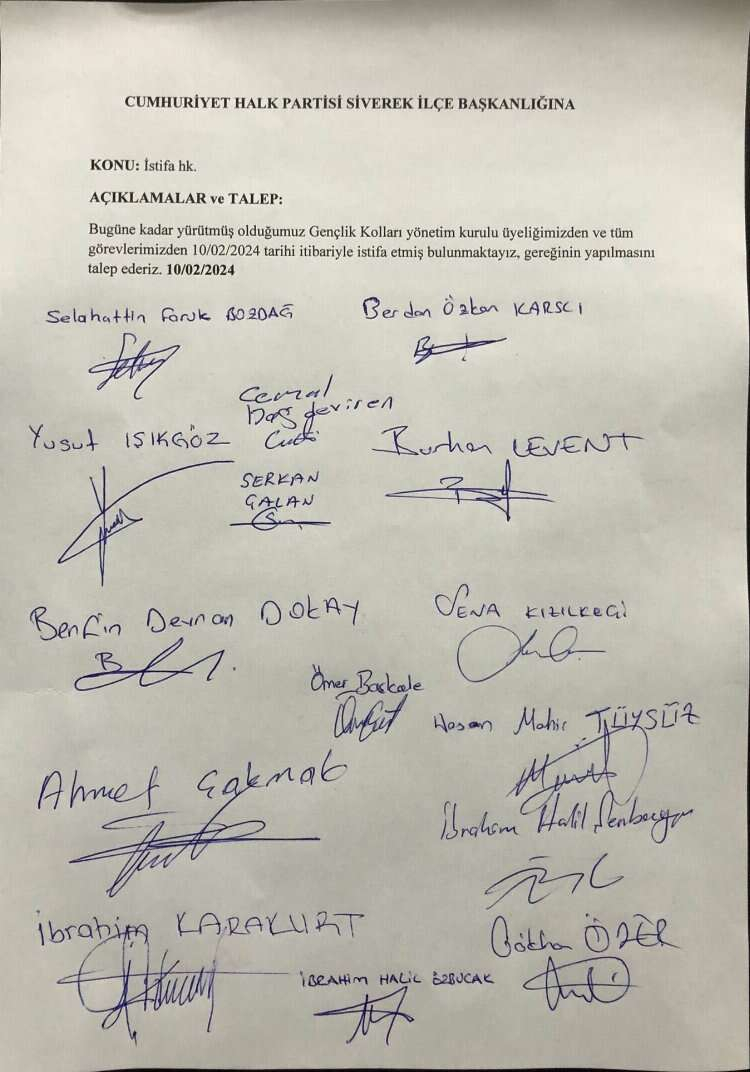 CUMHURİYET HALK PARTİSİ SİVEREK İLÇE BAŞKANLIĞINA
KONU: İstifa hk.
AÇIKLAMALAR ve TALEP:
Bugüne kadar yürütmüş olduğumuz Gençlik Kolları yönetim kurulu üyeliğimizden ve tüm
görevlerimizden 10/02/2024 tarihi itibariyle istifa etmiş bulunmaktayız, gereğinin yapılmasını
talep ederiz. 10/02/2024
Selahattin Faruk BOZDAĞ
Berdan Özkan KARSCI
Cemal
Daşdeviren
Yusuf IŞIKGÖZ
Burhan LEVENT
SERKAN
GALAN
Berfin Devran DOKAY
SENA KIZILKEÇİ
Ömer Baskale
Hasan Mahir TÜYSÜZ
Ahmet Çakmak
İbrahim Halil
İbrahim KARAKURT
Gökhan ÖZER
İBRAHİM HALİL ÖZBUCAK